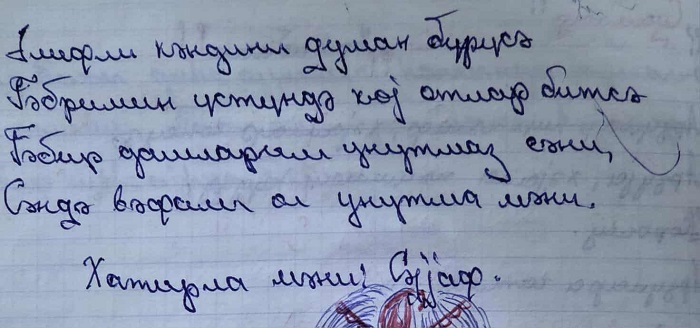 кәндини думан бүрүсә
Гәбримин үстүндә кој отлар битсә
Гәбир дашларым унутмаз сәни,
Сәндә вәфалы ол унутма мәни.
Хатирлa мәни: Сәјјаф.